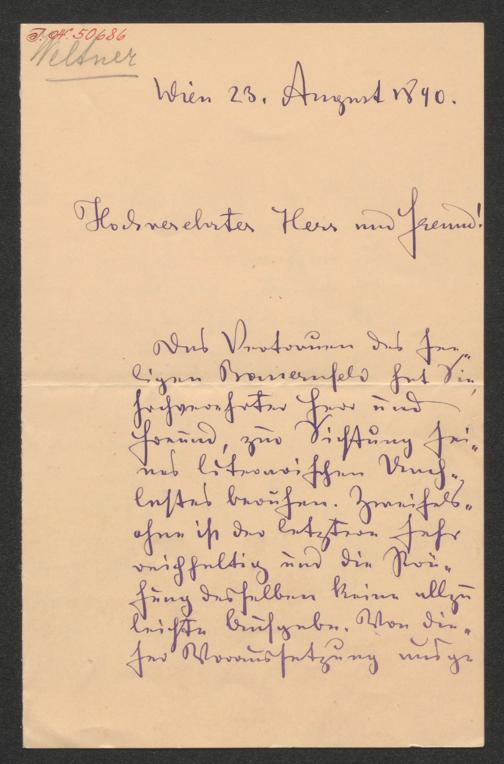 J.N. 50686
Weltner
Wien 23. August 1890.
Hochverehrter Herr und Freund!
Das Vertrauen des see„
ligen Bauernfeld hat Sie,
hochverehrter Herr und
Freund, zur Sichtung sei„
nes literarischen Nach„
lasses berufen. Zweifels„
ohne ist der letztere sehr
reichhaltig und die Prü„
fung desselben keine allzu
leichte Aufgabe. Von die„
ser Voraussetzung ausge